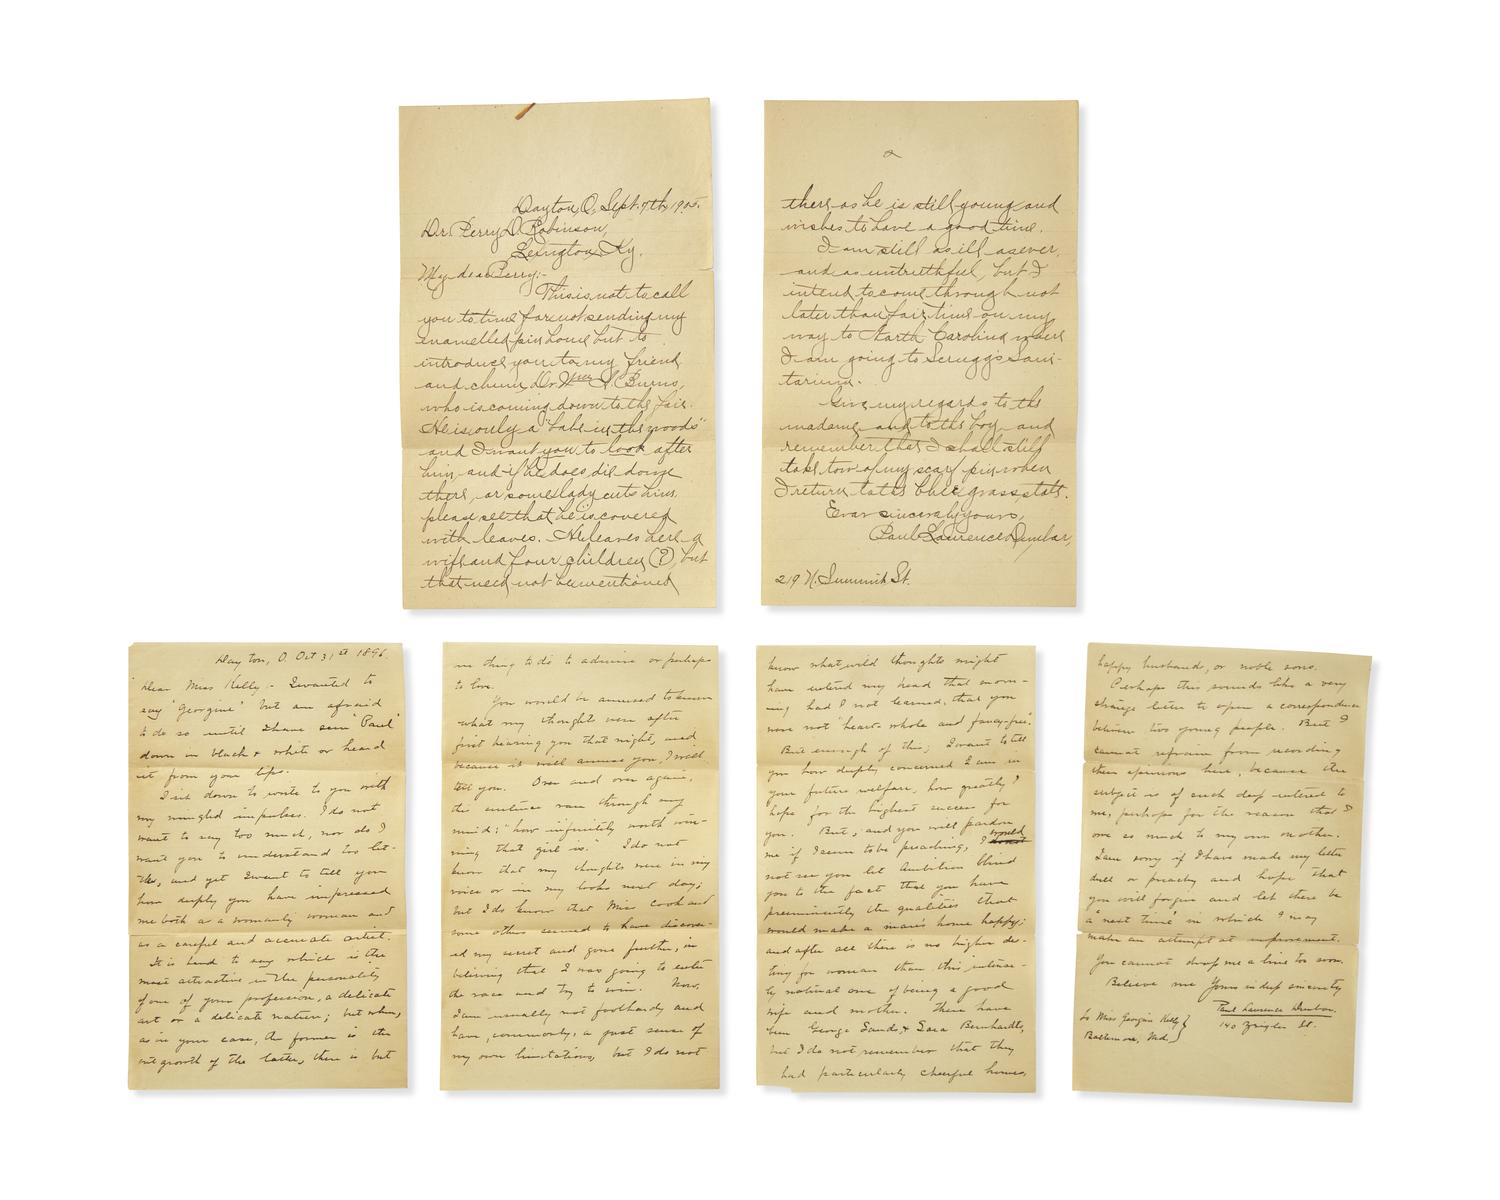 Dayton, O, Sept. 7th, 190
Dr. Perry D. Robinson,
Lexington, Ky.
My dear Perry:-
This is not to call
you to time for not sending my
enamelled pin home but to
introduce you to my friend
and chum, Dr. Wm Burns,
who is coming down to the fair.
He is only a "babe in the woods"
and I want you to look after
him, and if he does die down
there, or some lady cuts him,
please see that he is covered
with leaves. He leaves here a
wife and four children (?), but
that need not be mentioned
2
there as he is still young and
wishes to have a good time.
I am still as ill as ever,
and as untruthful, but I
intend to come through not
later than fair time on my
way to North Carolina where
I am going to Scruggs Sani-
tarium.
Give my regards to the
madame and to the boy and
remember that I shall still
take tow of my scarf pin when
I return to the blue grass state.
Ever sincerely yours,
Paul Laurence Dunbar,
219 N. Summit St.
Dayton, O. Oct 31st 1896.
Dear Miss Kelly:- I wanted to
say "Georgine" but am afraid
to do so until I have seen "Paul"
down in black & white or heard
it from your lips.
I sit down to write to you with
my mingled impulses. I do not
want to say too much, nor do I
want you to understand too lit-
tle, and yet I want to tell you
how deeply you have impressed
me both as a womanly woman and
as a careful and accurate artist.
It is hard to say which is the
most attractive in the personality
of one of your profession, a delicate
art or a delicate nature; but when,
as in your case, the former is the
outgrowth of the latter, there is but
one thing to do to admire or perhaps
to love.
You would be amused to know
what my thoughts were after
first hearing you that night, and
because it will amuse you, I will
tell you. Over and over again,
the sentence ran through my
mind: "how infinitely worth win-
ning that girl is." I do not
know that my thoughts were in my
voice or in my looks next day;
but I do know that Miss Cook and
some others seemed to have discover-
ed my secret and gone further, in
believing that I was going to enter
the race and try to win. Now,
I am usually not foolhardy and
have, commonly, a just sense of
my own limitations, but I do not
know what wild thoughts might
have entered my head that morn-
ing had I not learned, that you
were not "heart-whole and fancy-free."
But enough of this; I want to tell
you how deeply concerned I am in
your future welfare, how greatly I
hope for the highest success for
you. But, and you will pardon
me if I seem to be preaching, I would
not see you let Ambition blind
you to the fact that you have
preeminently the qualities that
would make a man's home happy;
and after all there is no higher des-
tiny for woman than this intense-
ly natural one of being a good
wife and mother. There have
been George Sands & Sara Bernhardts,
but I do not remember that they
had particularly cheerful homes,
happy husbands, or noble sons.
Perhaps this sounds like a very
strange letter to open a correspondence
between two young people. But I
cannot refrain from recording
these opinions here, because the
subject is of such deep interest to
me, perhaps for the reason that I
owe so much to my own mother.
I am sorry if I have made my letter
dull or preachy and hope that
you will forgive and let there be
a "next time" in which I may
make an attempt at improvement.
You cannot drop me a line too soon.
Believe me Yours in deep sincerity
Paul Laurence Dunbar.
140 Zeigler St.
To Miss Georgine Kelly
Baltimore, Md.